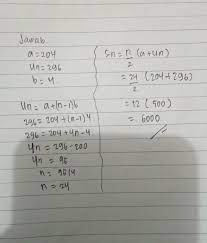 Jawab
a = 204
Un = 296
b = 4
Un = a+(n-1)b
296 = 204+(n-1)4
296 = 204+4n-4
4n = 296-200
4n = 96
n = 96/4
n = 24
Sn = n/2 (a+Un)
= 24/2 (204+296)
= 12 (500)
= 6000